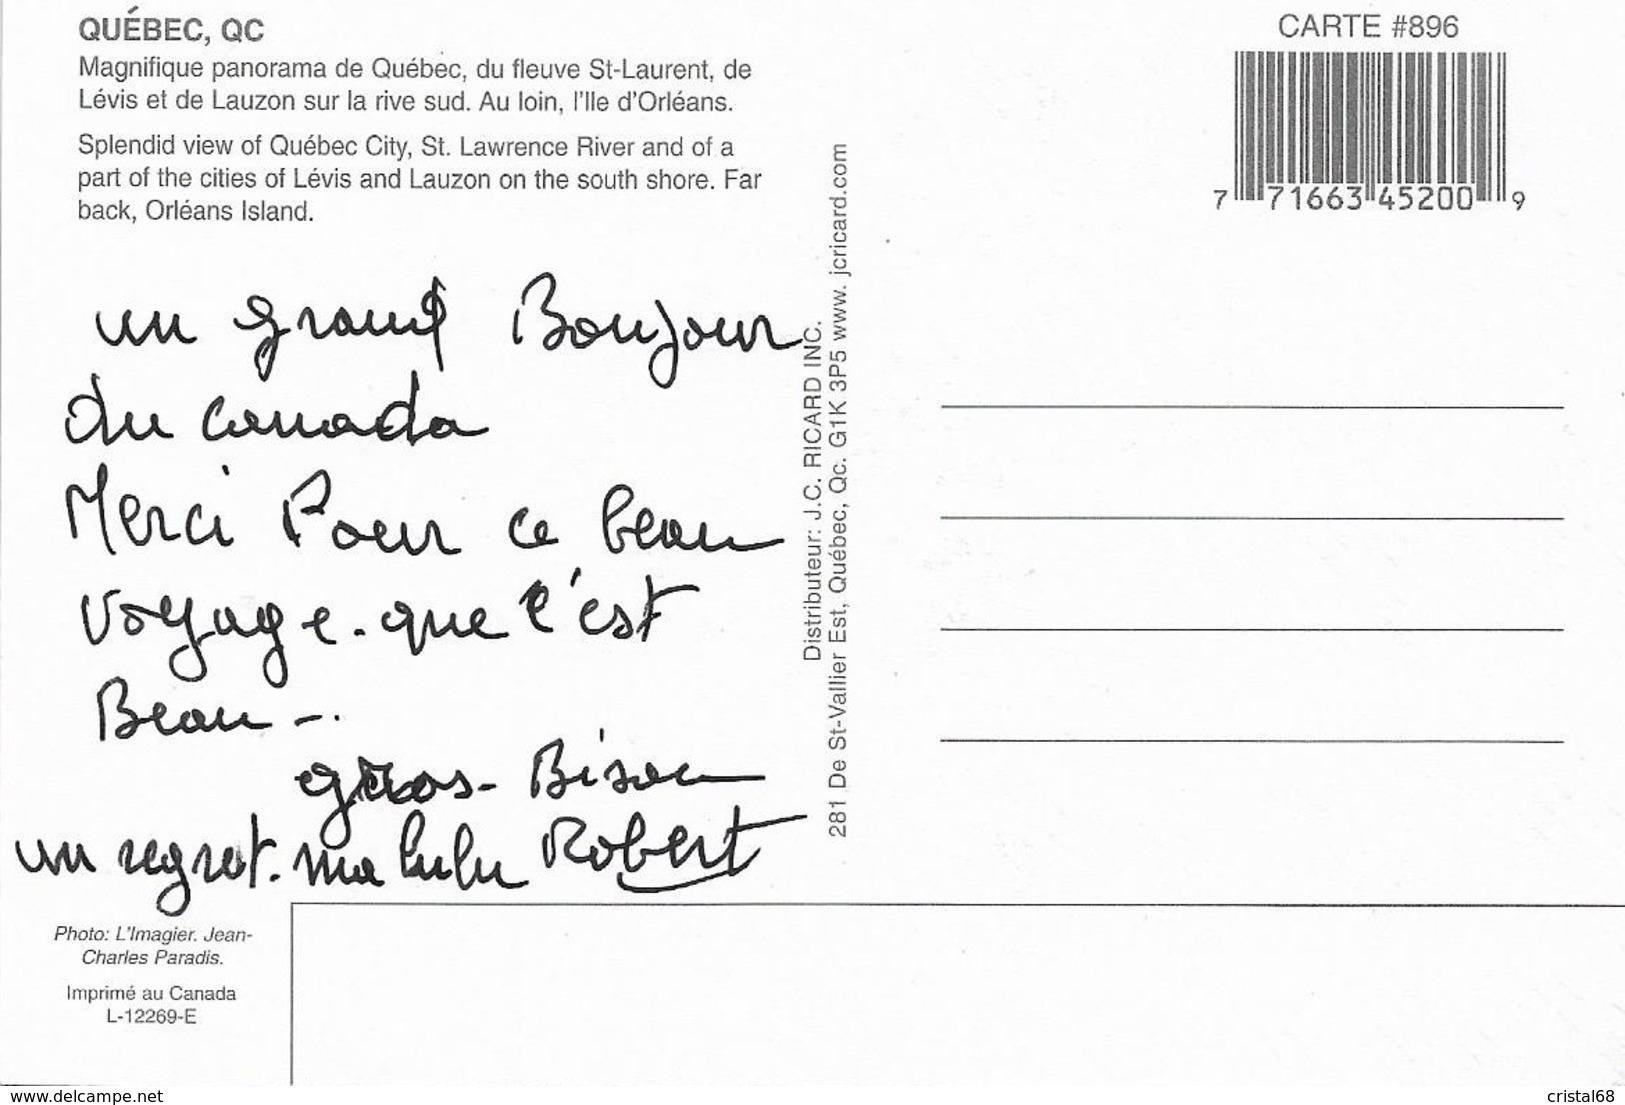 QUÉBEC, QC
Magnifique panorama de Québec, du fleuve St-Laurent, de
Lévis et de Lauzon sur la rive sud. Au loin, l'Ile d'Orléans.
Splendid view of Québec City, St. Lawrence River and of a
part of the cities of Lévis and Lauzon on the south shore. Far
back, Orléans Island.
un grand Bonjour
du Canada
Merci Pour ce beau
voyage. que c'est
Beau -.
gros - Bisou
un regret. ma lulu Robert
Photo: L'Imagier. Jean-
Charles Paradis.
Imprimé au Canada
L-12269-E
Distributeur: J.C. RICARD INC.
281 De St-Vallier Est, Québec, Qc. G1K 3P5 www. jcricard.com
CARTE #896
7 71663 45200 9
www.delcampe.net
cristal68